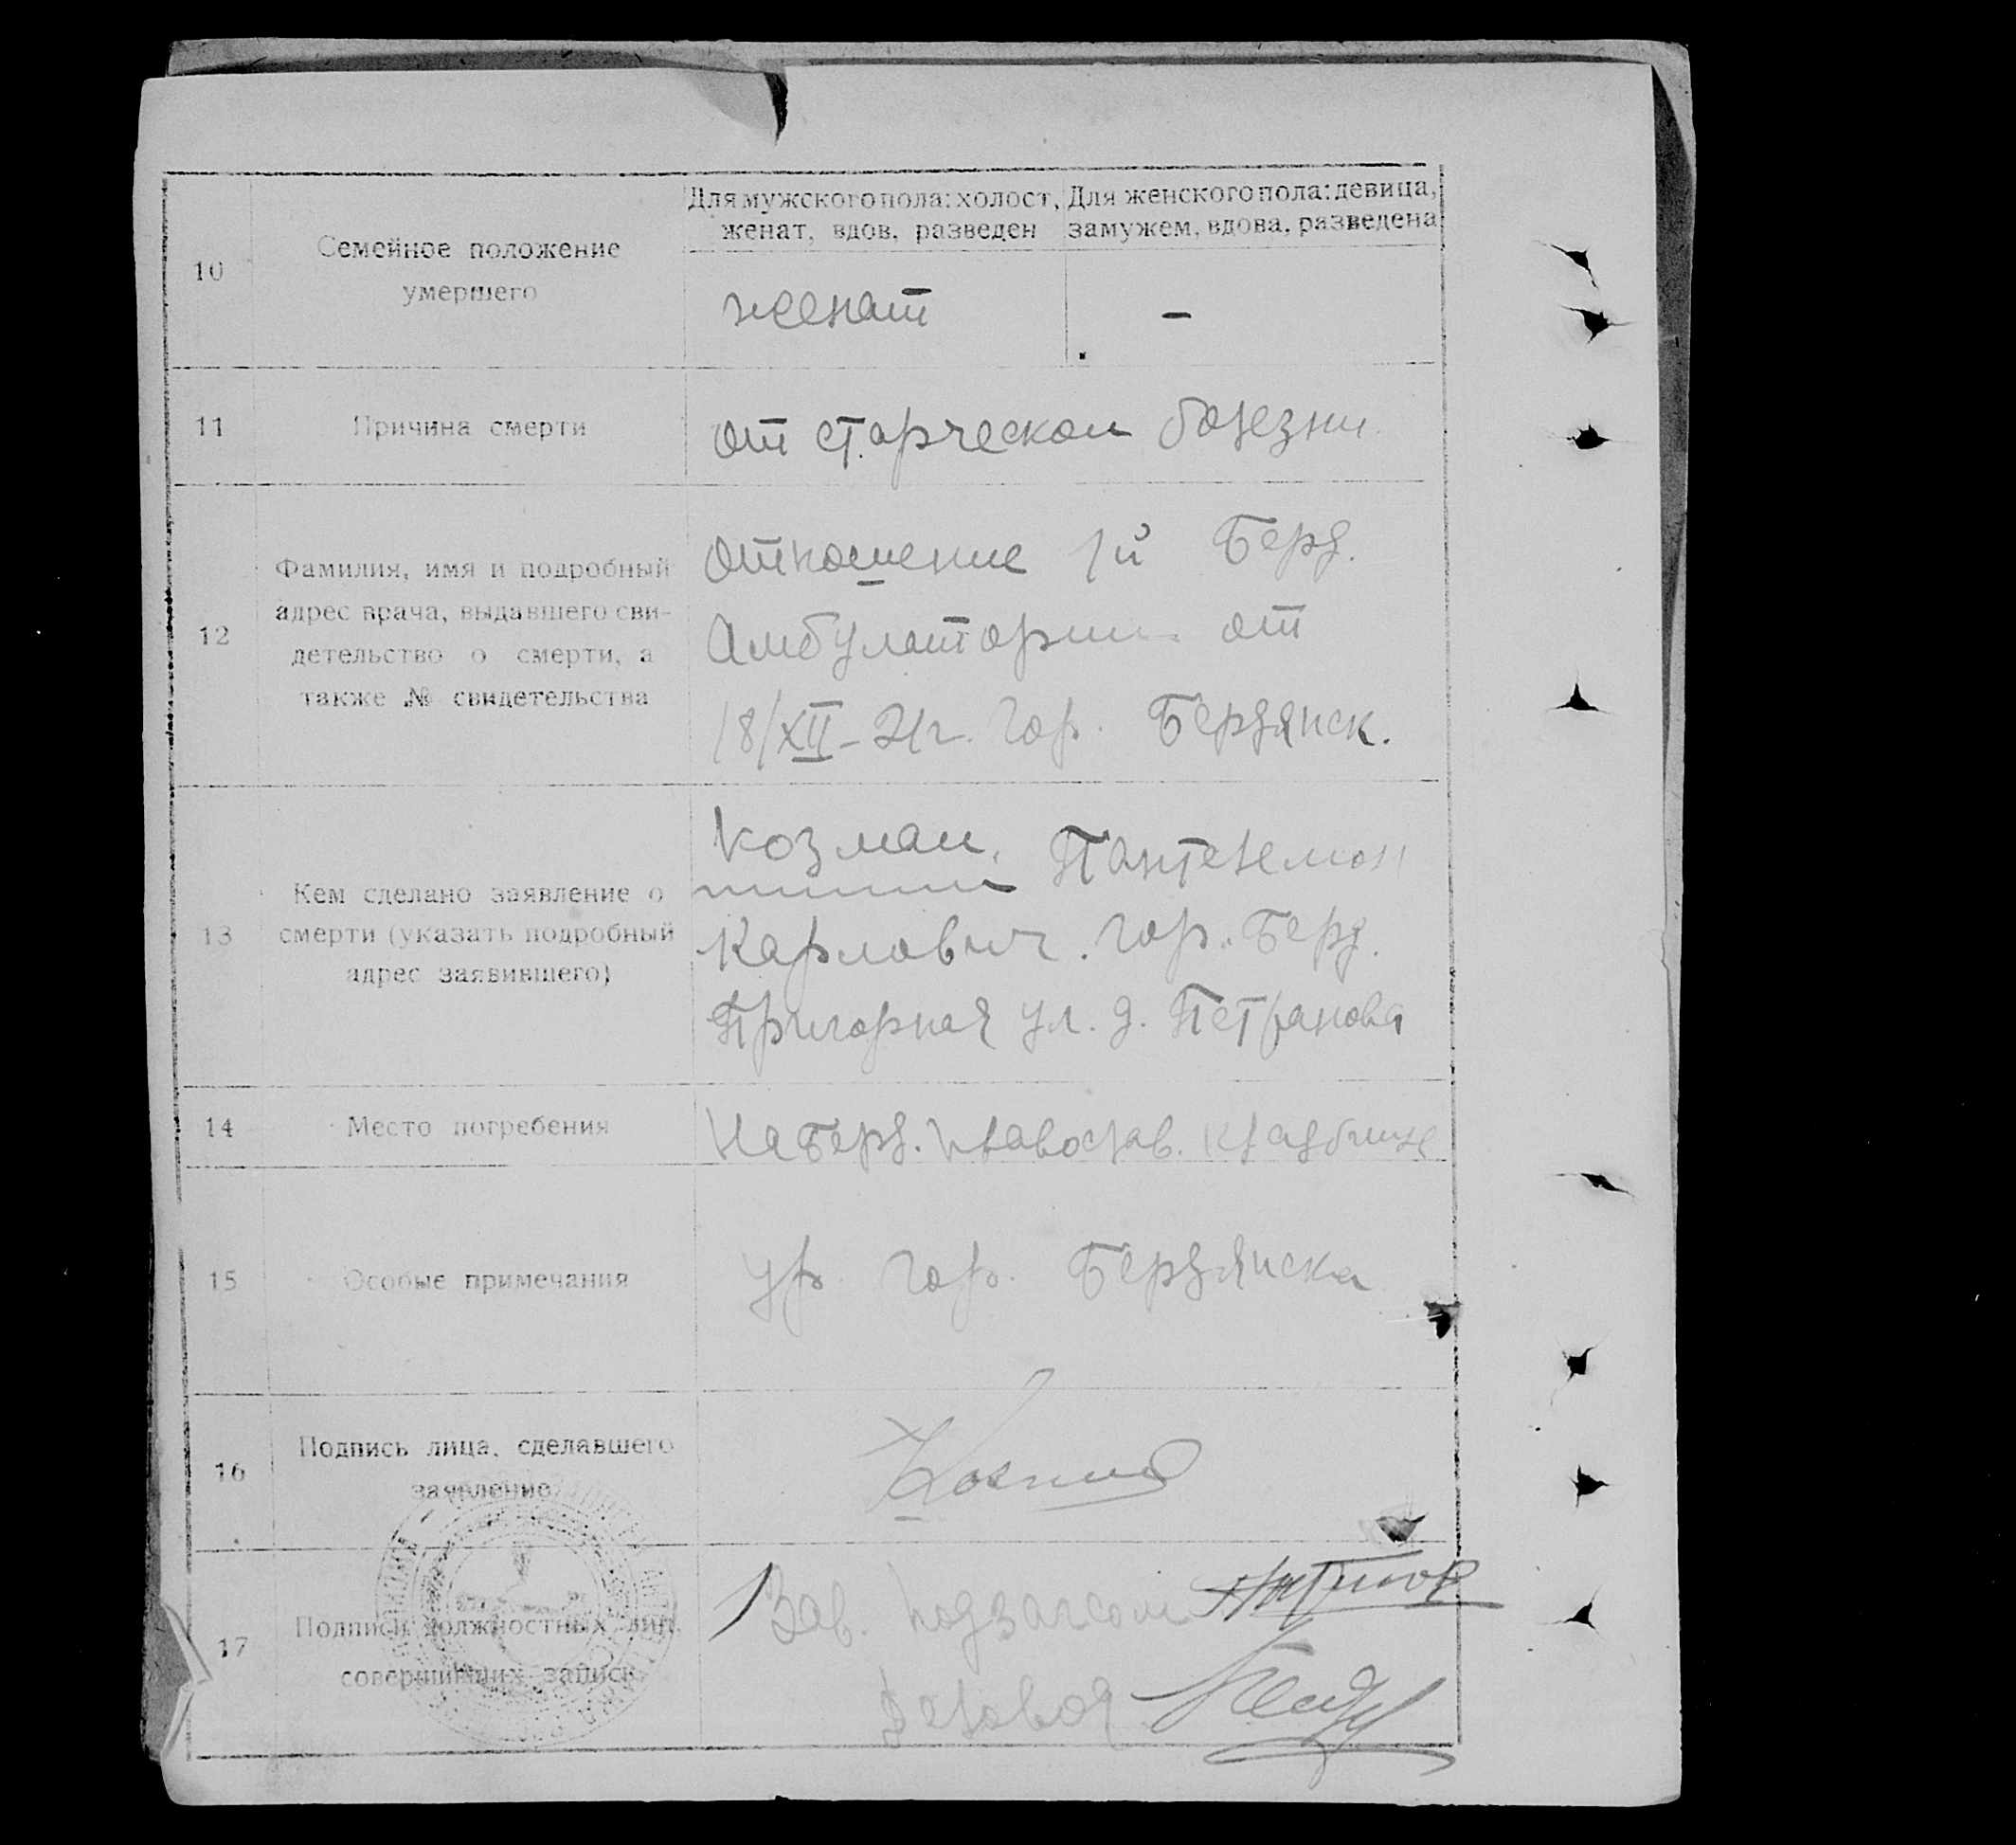 Для мужского пола: холост, женат, вдов, разведен
Для женского пола: девица, замужем, вдова, разведена
10
Семейное положение
умершего
женат
-
11
Причина смерти
от старческой болезни
12
Фамилия, имя и подробный
адрес врача, выдавшего сви-
детельство о смерти, а
также № свидетельства
отношение 1й Берд.
Амбулатории от
18/XII-21г. гор. Бердянск.
13
Кем сделано заявление о
смерти (указать подробный
адрес заявившего)
Козман, Пантелемон
Карлович. гор. Берд.
Пригорная ул. д. Петранова
14
Место погребения
На Берд. Православ. кладбище
15
Особые примечания
ур. гор. Бердянска
16
Подпись лица, сделавшего
заявление
17
Подписи должностных лиц,
совершивших запись
Зав. подзагсом
Деловод